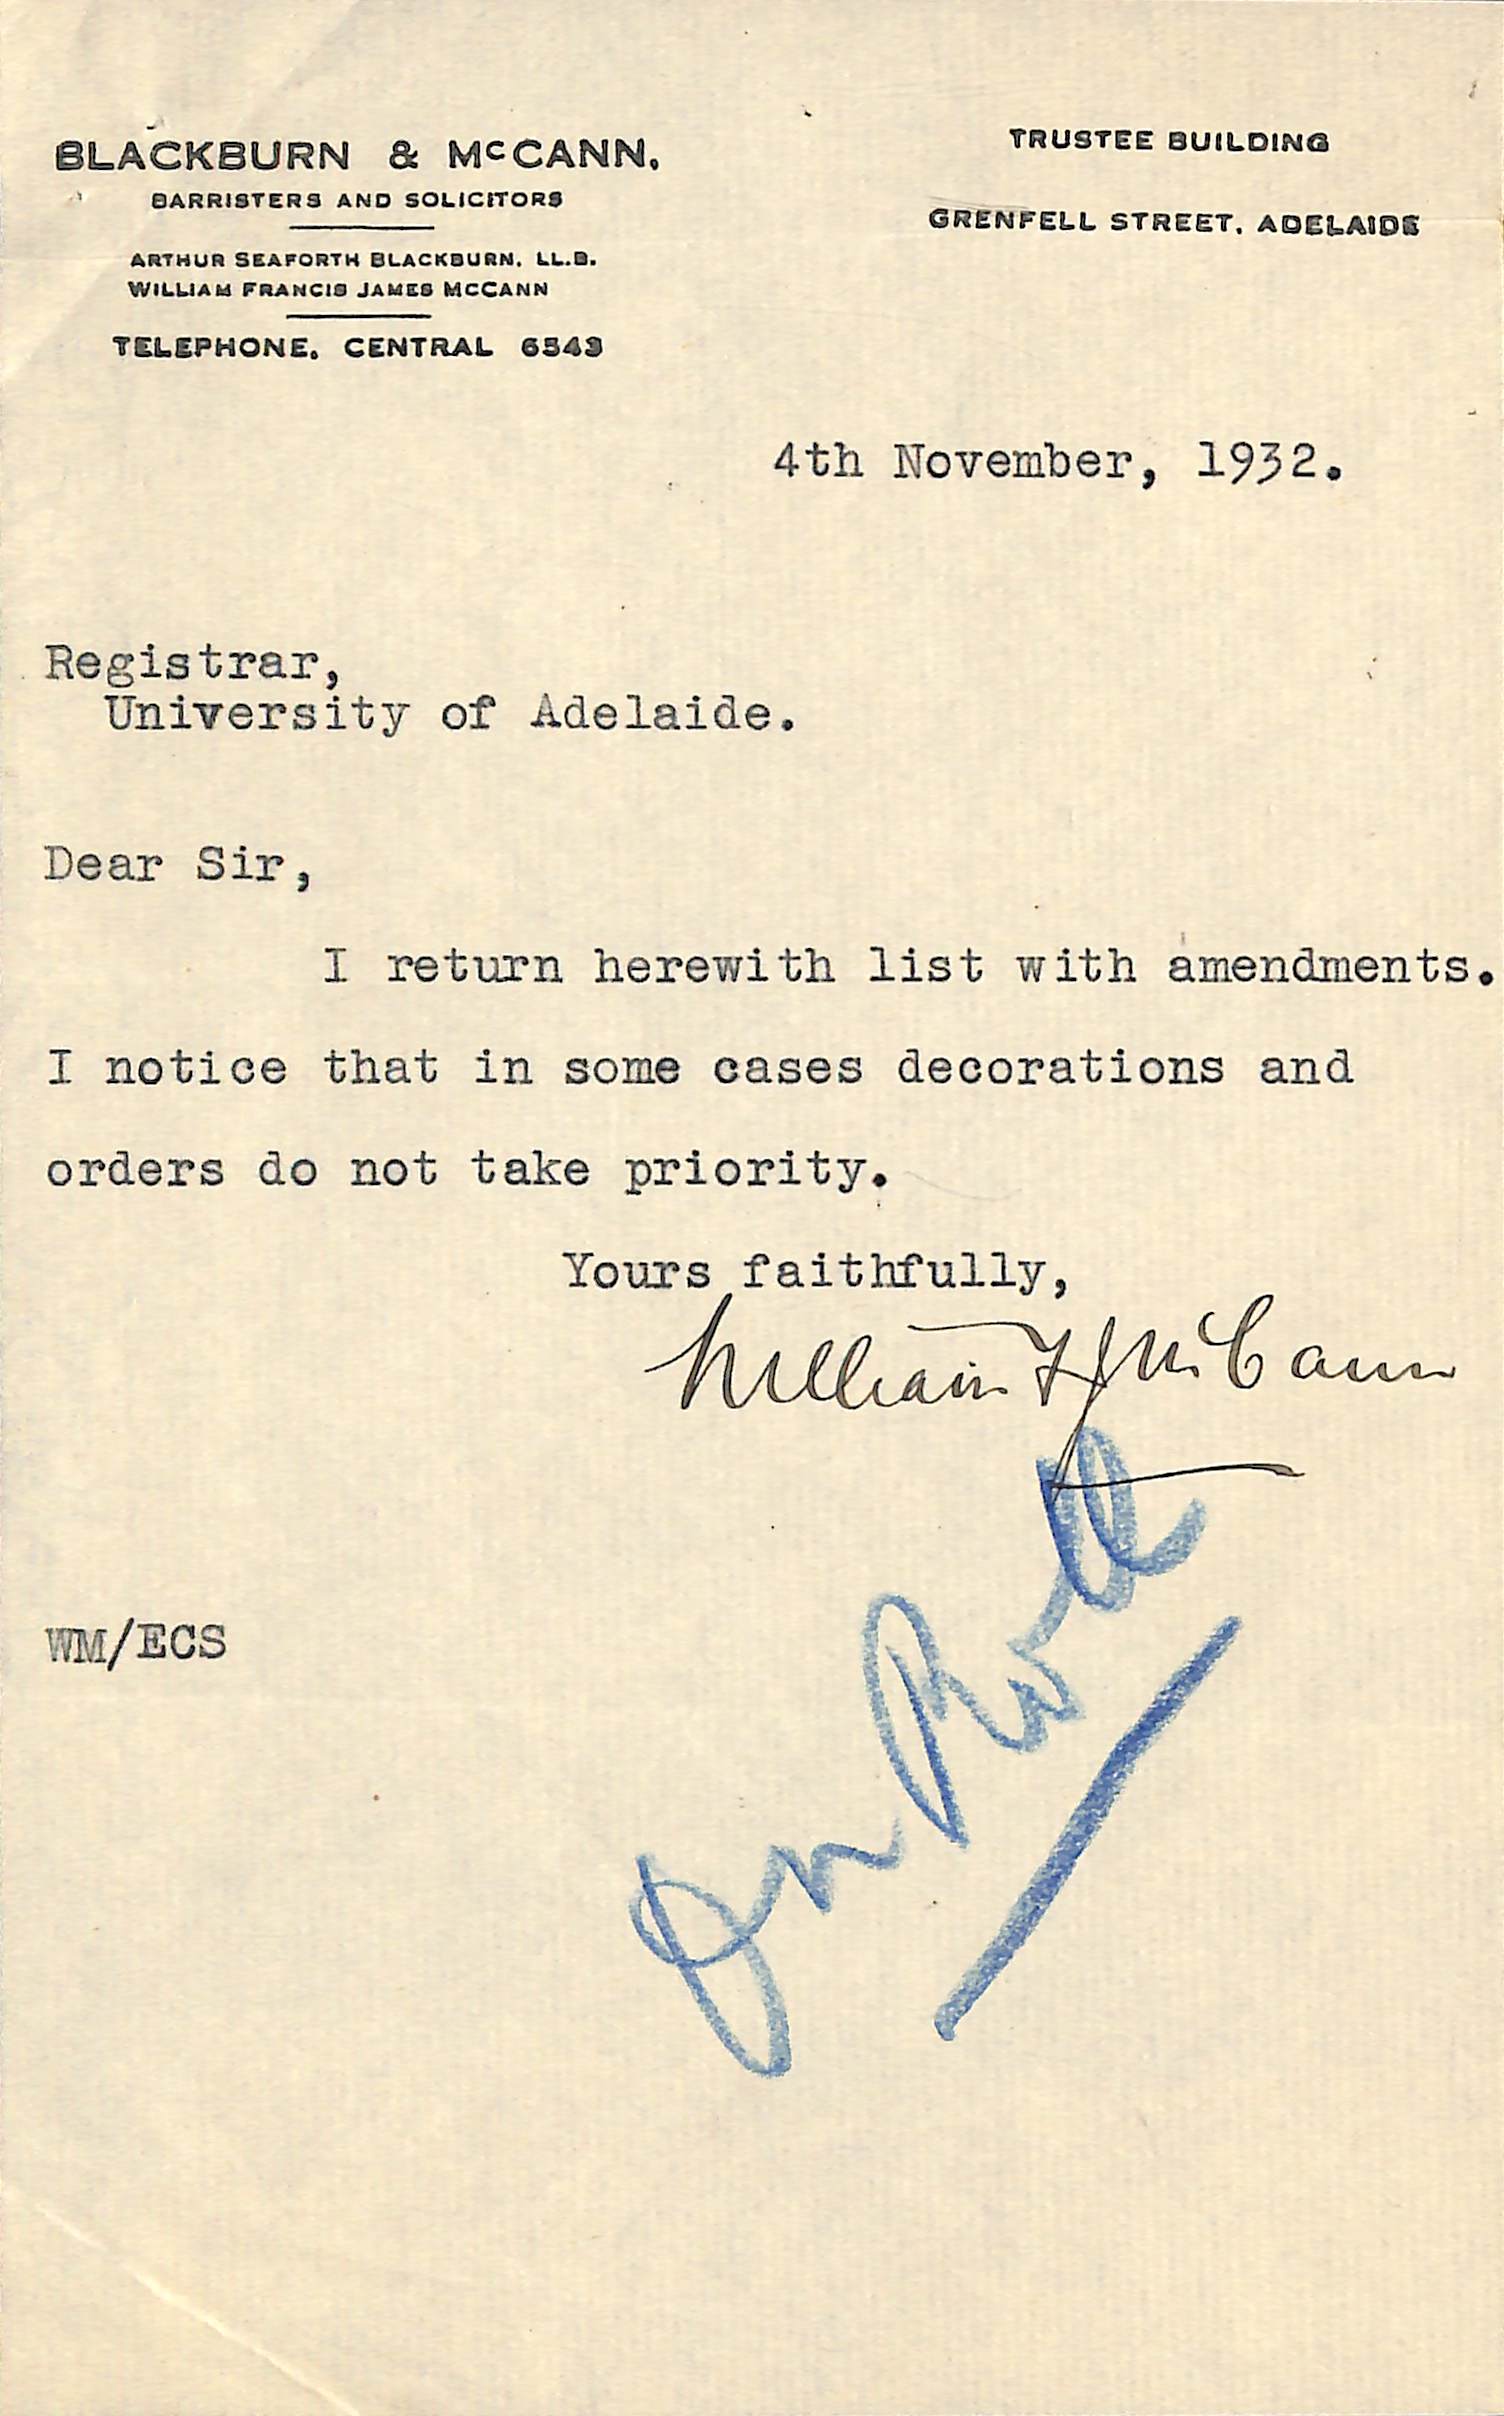 BLACKBURN & McCANN.
BARRISTERS AND SOLICITORS
ARTHUR SEAFORTH BLACKBURN. LL.B.
WILLIAM FRANCIS JAMES McCANN
TELEPHONE. CENTRAL 6543
TRUSTEE BUILDING
GRENFELL STREET. ADELAIDE
4th November, 1932.
Registrar,
University of Adelaide.
Dear Sir,
I return herewith list with amendments.
I notice that in some cases decorations and
orders do not take priority.
Yours faithfully,
William F J McCann
On Roll
WM/ECS